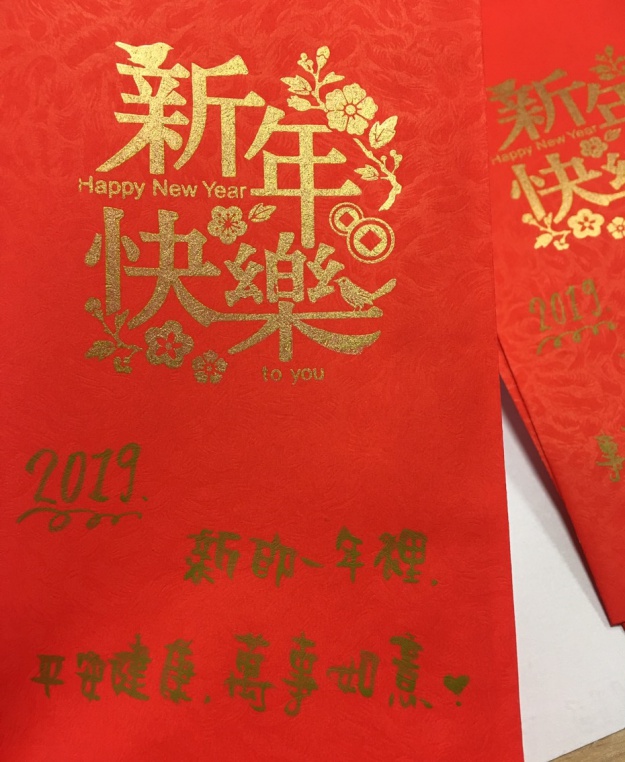 新年
Happy New Year
快樂
to you
2019.
新的一年裡,
平安健康,萬事如意♥
新年
Happy New Year
快樂
2019
萬